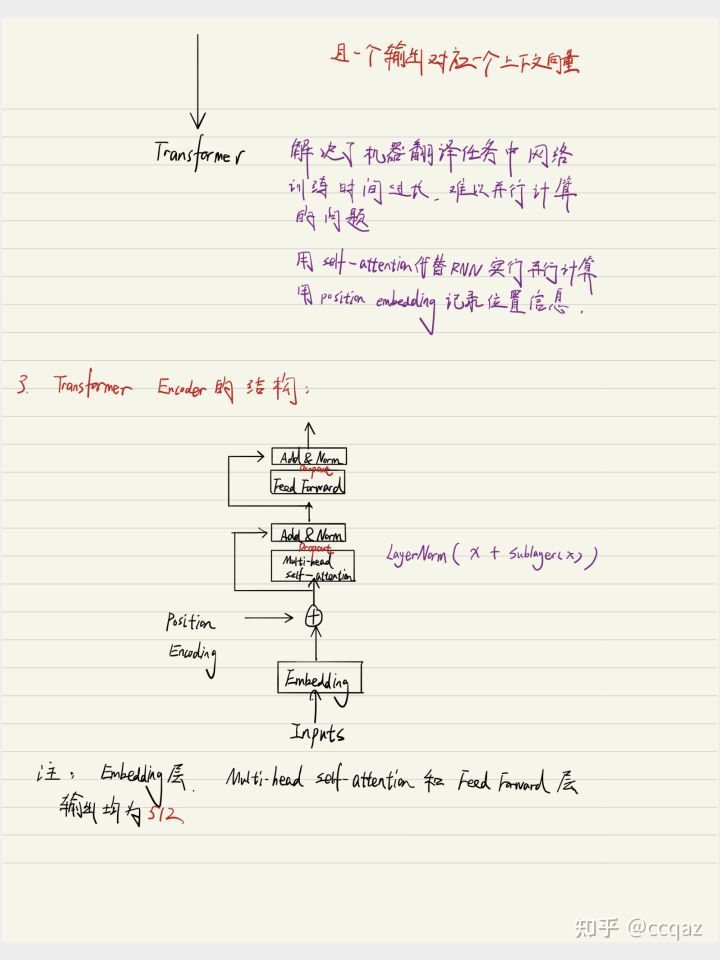 且一个输出对应一个上下文向量
Transformer
解决了机器翻译任务中网络
训练时间过长，难以并行计算
的问题
用 self-attention代替RNN 实行并行计算
用 position embedding 记录位置信息.
3. Transformer Encoder的结构:
Add & Norm
Dropout
Feed Forward
Add & Norm
Dropout
Multi-head
self-attention
LayerNorm( x + sublayer(x) )
Position
Encoding
+
Embedding
Inputs
注: Embedding层. Multi-head self-attention 和 Feed Forward 层
输出均为512
知乎 @ccqaz